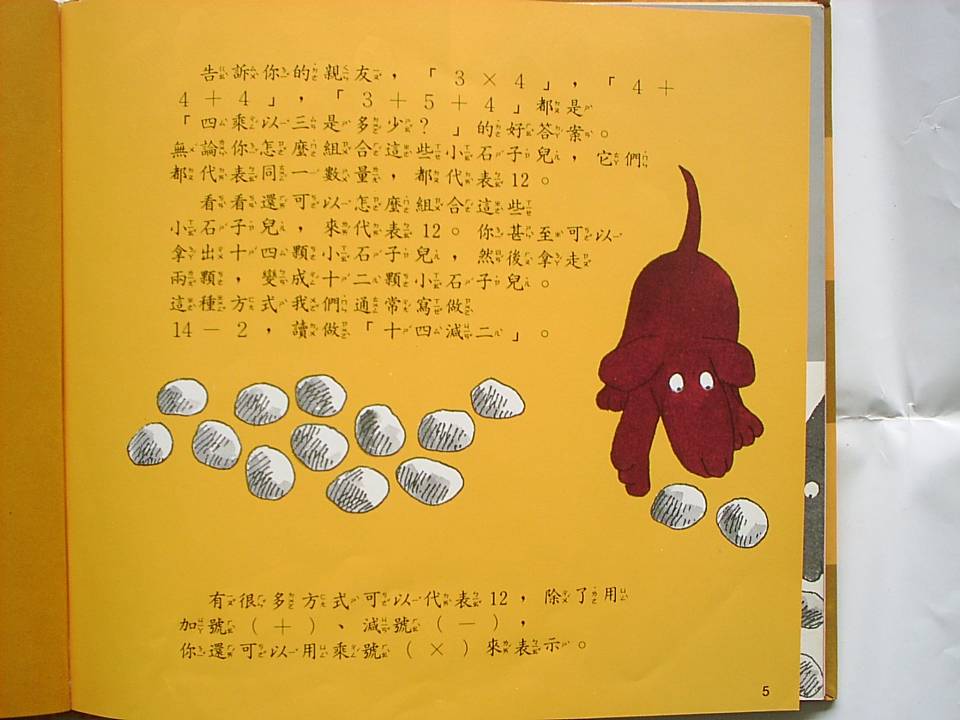 告訴你的親友，「3×4」，「4＋
4＋4」，「3＋5＋4」都是
「四乘以三是多少？」的好答案。
無論你怎麼組合這些小石子兒，它們
都代表同一數量，都代表12。
看看還可以怎麼組合這些
小石子兒，來代表12。你甚至可以
拿出十四顆小石子兒，然後拿走
兩顆，變成十二顆小石子兒。
這種方式我們通常寫做
14－2，讀做「十四減二」。
有很多方式可以代表12，除了用
加號（＋）、減號（－），
你還可以用乘號（×）來表示。
5